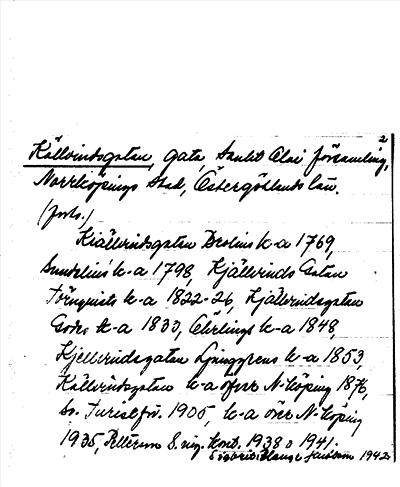 2
Källvindsgatan, gata, Sankt Olai församling,
Norrköpings stad, Östergötlands län.
(forts.)
Kiällvindsgatan Brolins k-a 1769,
Sundelius' k-a 1798, Kjällvinds Gatan
Törnquists k-a 1822-26, Kjällvindsgatan
k-a 1833, k-a 1848,
Kjellvindsgatan Ljunggrens k-a 1853,
Källvindsgatan k-a öfver N-köping 1876,
Sv. Turistför. 1905, k-a över N-köping
1935, 1938 o 1941.
1942